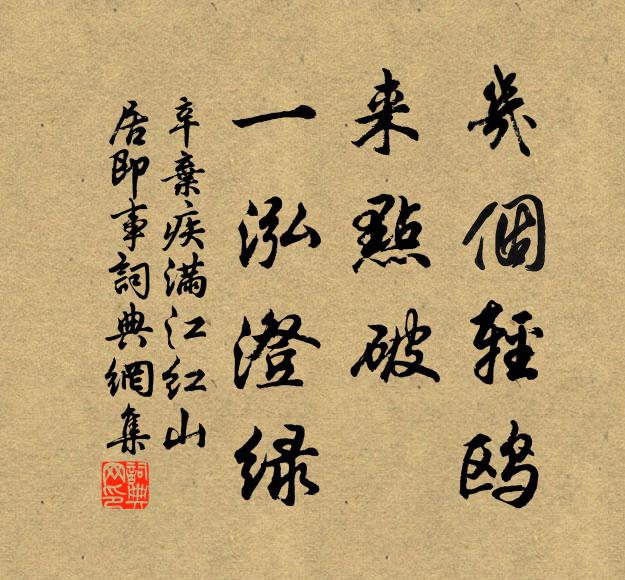 幾個輕鷗
来點破
一泓澄緑
辛棄疾滿江红山
居即事詞典網集
詞典网印